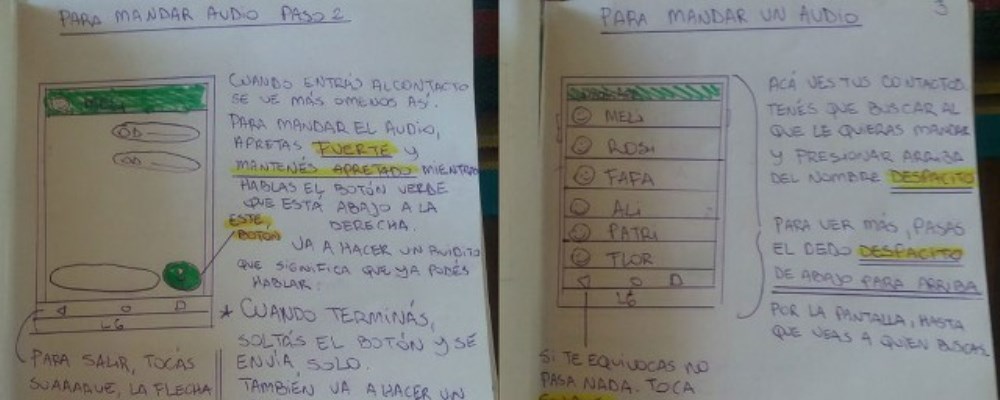 PARA MANDAR AUDIO PASO 2
CUANDO ENTRÁS AL CONTACTO
SE VE MÁS O MENOS ASÍ.
PARA MANDAR EL AUDIO,
APRETAS FUERTE Y
MANTENÉS APRETADO MIENTRAS
HABLAS EL BOTÓN VERDE
QUE ESTÁ ABAJO A LA
DERECHA.
ESTE
BOTÓN
VA A HACER UN RUIDITO
QUE SIGNIFICA QUE YA PODÉS
HABLAR.
* CUANDO TERMINÁS,
SOLTÁS EL BOTÓN Y SE
ENVÍA, SOLO.
TAMBIÉN VA A HACER UN
LG
PARA SALIR, TOCÁS
SUAAAAUE, LA FLECHA
PARA MANDAR UN AUDIO
3
MELI
ROSI
FAFA
ALI
PATRI
FLOR
LG
ACÁ VES TUS CONTACTOS.
TENÉS QUE BUSCAR AL
QUE LE QUIERAS MANDAR
Y PRESIONAR ARRIBA
DEL NOMBRE DESPACITO
PARA VER MÁS, PASAS
EL DEDO DESPACITO
DE ABAJO PARA ARRIBA
POR LA PANTALLA, HASTA
QUE VEAS A QUIEN BUSCAS
SI TE EQUIVOCAS NO
PASA NADA. TOCA